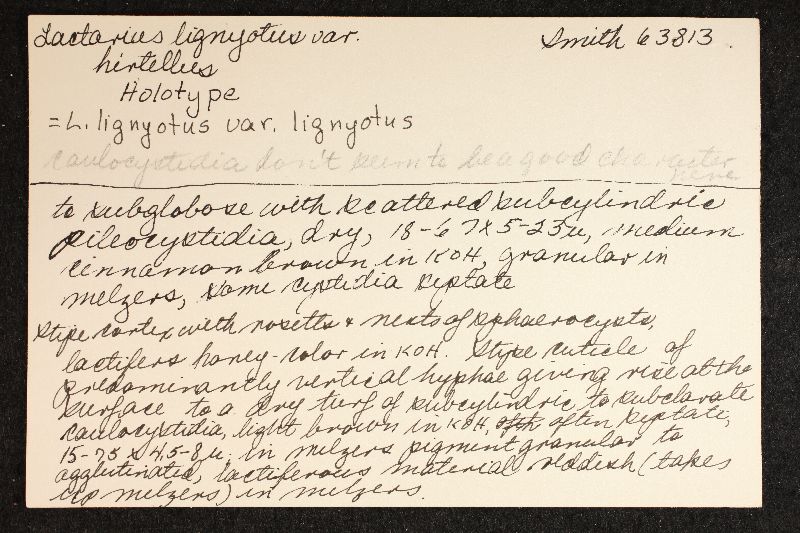 Lactarius lignyotus var. Smith 63813
hirtellus
Holotype
= L. lignyotus var. lignyotus
caulocystidia don't seem to be a good character
here
to subglobose with scattered subcylindric
pileocystidia, dry, 18-67 x 5-23u, medium
cinnamon brown in KOH, granular in
melzers, some cystidia septate
Stipe cortex with rosetts & nests of sphaerocysts,
lactifers honey-color in KOH. Stipe cuticle of
predominantly vertical hyphae giving rise at the
surface to a dry turf of subcylindric to subclavate
caulocystidia, light brown in KOH, often septate,
15-75 x 4.5-8u, in melzers pigment granular to
agglutinated, lactiferous material reddish (takes
up melzers) in melzers.